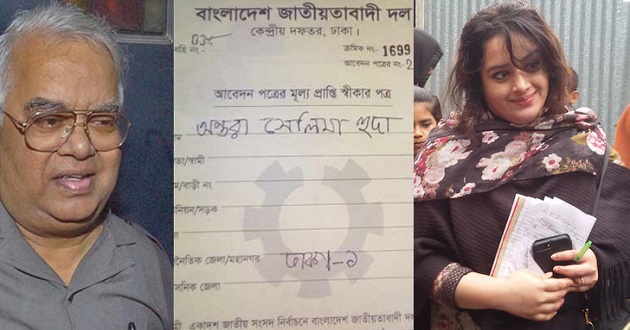 বাংলাদেশ জাতীয়তাবাদী দল
কেন্দ্রীয় দফতর, ঢাকা।
বহি নং- 035
ক্রমিক নং- 1699
আবেদন পত্রের নং-2
আবেদন পত্রের মূল্য প্রাপ্তি স্বীকার পত্র
নাম অন্তরা সেলিমা হুদা
তা/স্বামী
ম/বাড়ী নং
নিয়ন/সড়ক
নৈতিক জেলা/মহানগর ঢাকা-১
সনিক জেলা
একাদশ জাতীয় সংসদ নির্বাচনে বাংলাদেশ জাতীয়তাবাদী দল